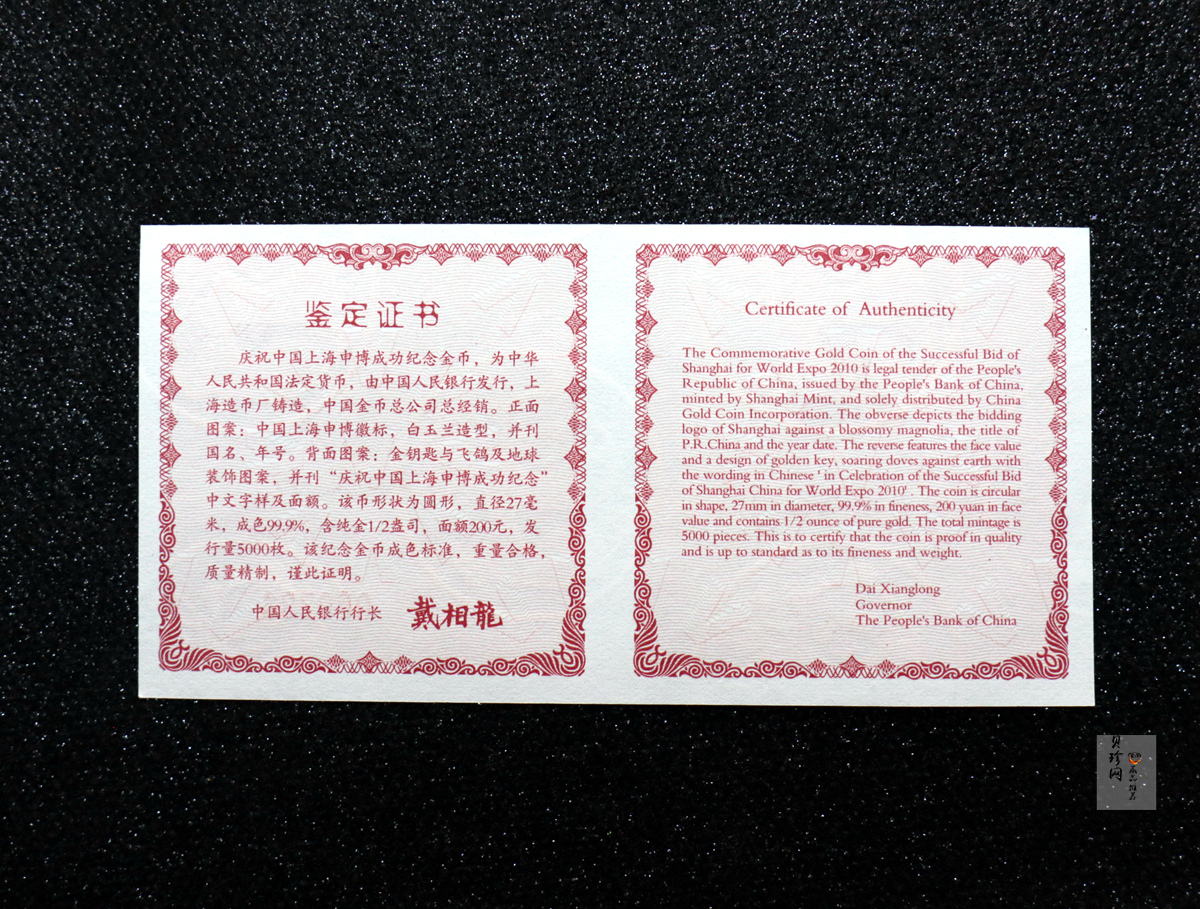 鉴定证书
庆祝中国上海申博成功纪念金币，为中华
人民共和国法定货币，由中国人民银行发行，上
海造币厂铸造，中国金币总公司总经销。正面
图案：中国上海申博徽标，白玉兰造型，并刊
国名、年号。背面图案：金钥匙与飞鸽及地球
装饰图案，并刊“庆祝中国上海申博成功纪念”
中文字样及面额。该币形状为圆形，直径27毫
米，成色99.9%，含纯金1/2盎司，面额200元，发
行量5000枚。该纪念金币成色标准，重量合格，
质量精制，谨此证明。
中国人民银行行长 戴相龍
Certificate of Authenticity
The Commemorative Gold Coin of the Successful Bid of
Shanghai for World Expo 2010 is legal tender of the People's
Republic of China, issued by the People's Bank of China,
minted by Shanghai Mint, and solely distributed by China
Gold Coin Incorporation. The obverse depicts the bidding
logo of Shanghai against a blossomy magnolia, the title of
P.R.China and the year date. The reverse features the face value
and a design of golden key, soaring doves against earth with
the wording in Chinese ' in Celebration of the Successful Bid
of Shanghai China for World Expo 2010' . The coin is circular
in shape, 27mm in diameter, 99.9% in fineness, 200 yuan in face
value and contains 1/2 ounce of pure gold. The total mintage is
5000 pieces. This is to certify that the coin is proof in quality
and is up to standard as to its fineness and weight.
Dai Xianglong
Governor
The People's Bank of China
贝珍网